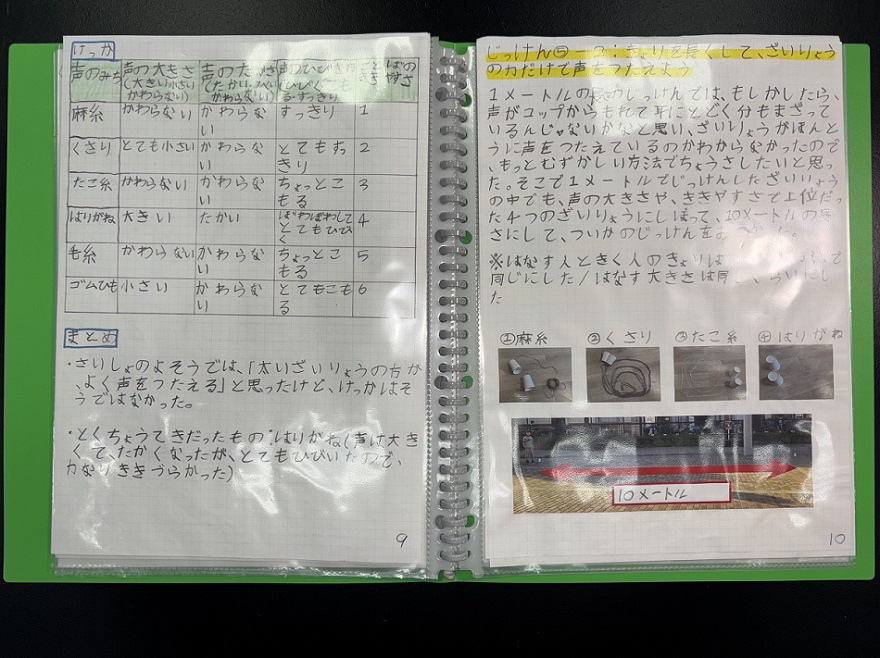 けっか
声のみち 声の大きさ (大きい小さい かわらない) 声のたかさ (たかい、ひくい かわらない) 声のひびき
麻糸 かわらない かわらない すっきり 1
くさり とても小さい かわらない とてもすっきり 2
たこ糸 かわらない かわらない ちょっとこもる 3
はりがね 大きい たかい とてもひびく 4
毛糸 かわらない かわらない ちょっとこもる 5
ゴムひも 小さい かわらない とてもこもる 6
まとめ
・さいしょのよそうでは、「太いざいりょうの方が
、よく声をつたえる」と思ったけど、けっかはそ
うではなかった。
・とくちょうてきだったもの はりがね(声は大き
くて、たかくなったが、とてもひびいたので、
かなりききづらかった)
9
じっけん⑤－2：きょりを長くして、ざいりょう
の力だけで声をつたえよう
1メートルの長さのじっけんでは、もしかしたら、
声がコップからもれて耳にとどく分もまざって
いるんじゃないかなと思い、ざいりょうがほんと
うに声をつたえているのかわからなかったので
、もっとむずかしい方法でちょうさしたいと思っ
た。そこで1メートルでじっけんしたざいりょう
の中でも、声の大きさや、ききやすさで上位だっ
た4つのざいりょうにしぼって、10メートルの長
さにして、ついかのじっけんを
※はなす人ときく人のきょりは
同じにした/はなす大きさは同
た
①麻糸 ②くさり ③たこ糸 ④はりがね
10メートル
10